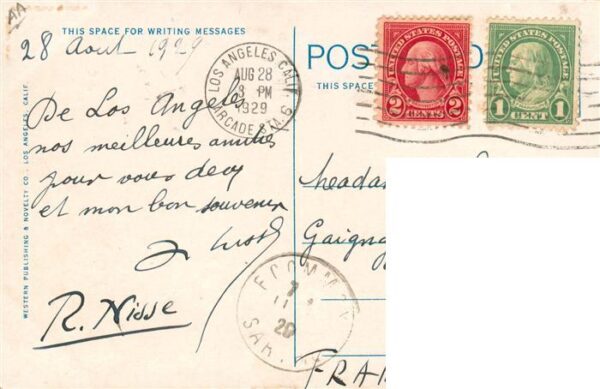 AA
THIS SPACE FOR WRITING MESSAGES
28 Aout 1929
De Los Angeles
nos meilleures amitiés
pour vous deux
et mon bon souvenir
R. Nisse
LOS ANGELES CALIF.
AUG 28
3 PM
1929
ARCADE STA. 6
POST
THIS SPACE
UNITED STATES POSTAGE
2 CENTS 2
UNITED STATES POSTAGE
FRANKLIN
1 CENT 1
Gaign
ECOMMOY
SAR
FRA
WESTERN PUBLISHING & NOVELTY CO. - LOS ANGELES, CALIF.